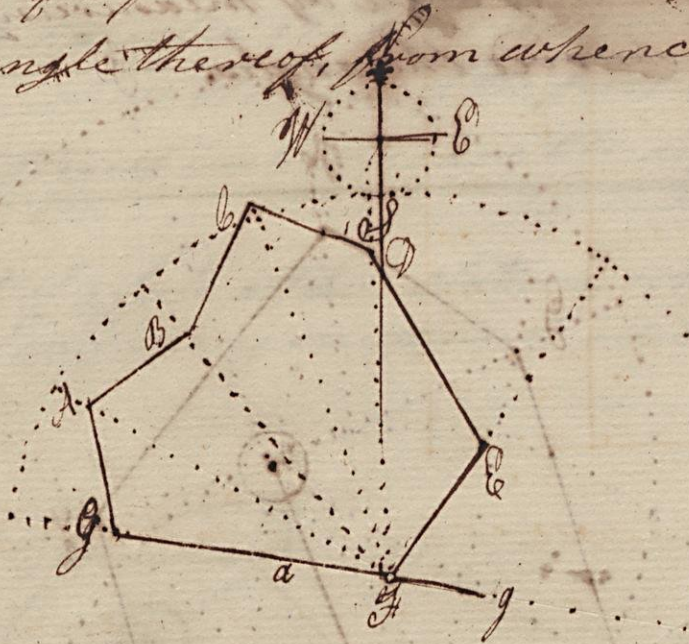 ngle thereof, from whenc
W E
S
b
D
B
A
E
G
a
F g